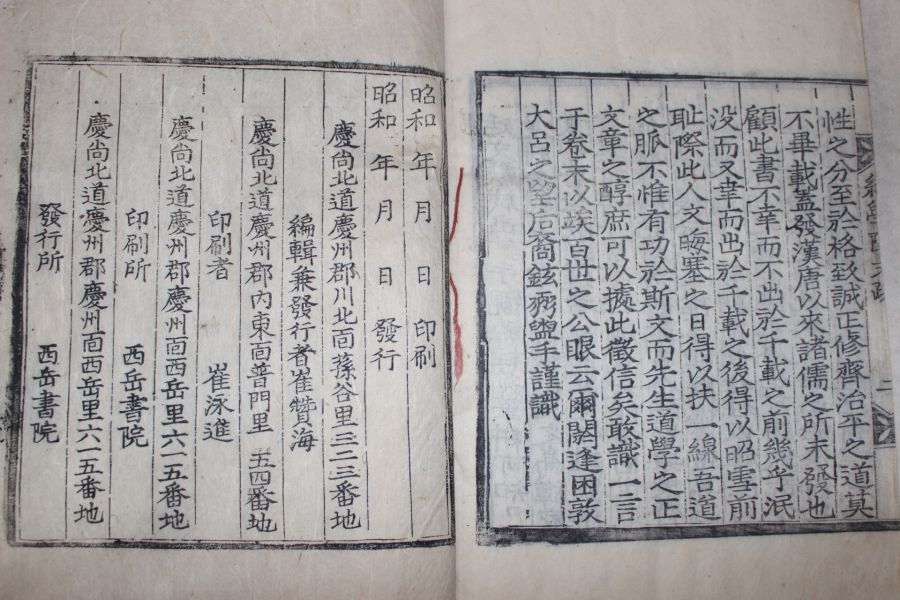 性之分至於格致誠正修齊治平之道莫
不畢載盖發漢唐以來諸儒之所未發也
顧此書不幸而不出於千載之前幾乎泯
没而又幸而出於千載之後得以昭雪前
耻際此人文晦塞之日得以扶一線吾道
之脉不惟有功於斯文而先生道學之正
文章之醇庶可以據此徵信矣敢識一言
于卷末以竢百世之公眼云爾閼逢困敦
大呂之望后裔鉉弼盥手謹識
昭和 年 月 日 印刷
昭和 年 月 日 發行
慶尚北道慶州郡川北面蓀谷里三二三番地
編輯兼發行者崔贊海
慶尚北道慶州郡内東面普門里 五四番地
印刷者 崔泳進
慶尚北道慶州郡慶州面西岳里六一五番地
印刷所 西岳書院
慶尚北道慶州郡慶州面西岳里六一五番地
發行所 西岳書院